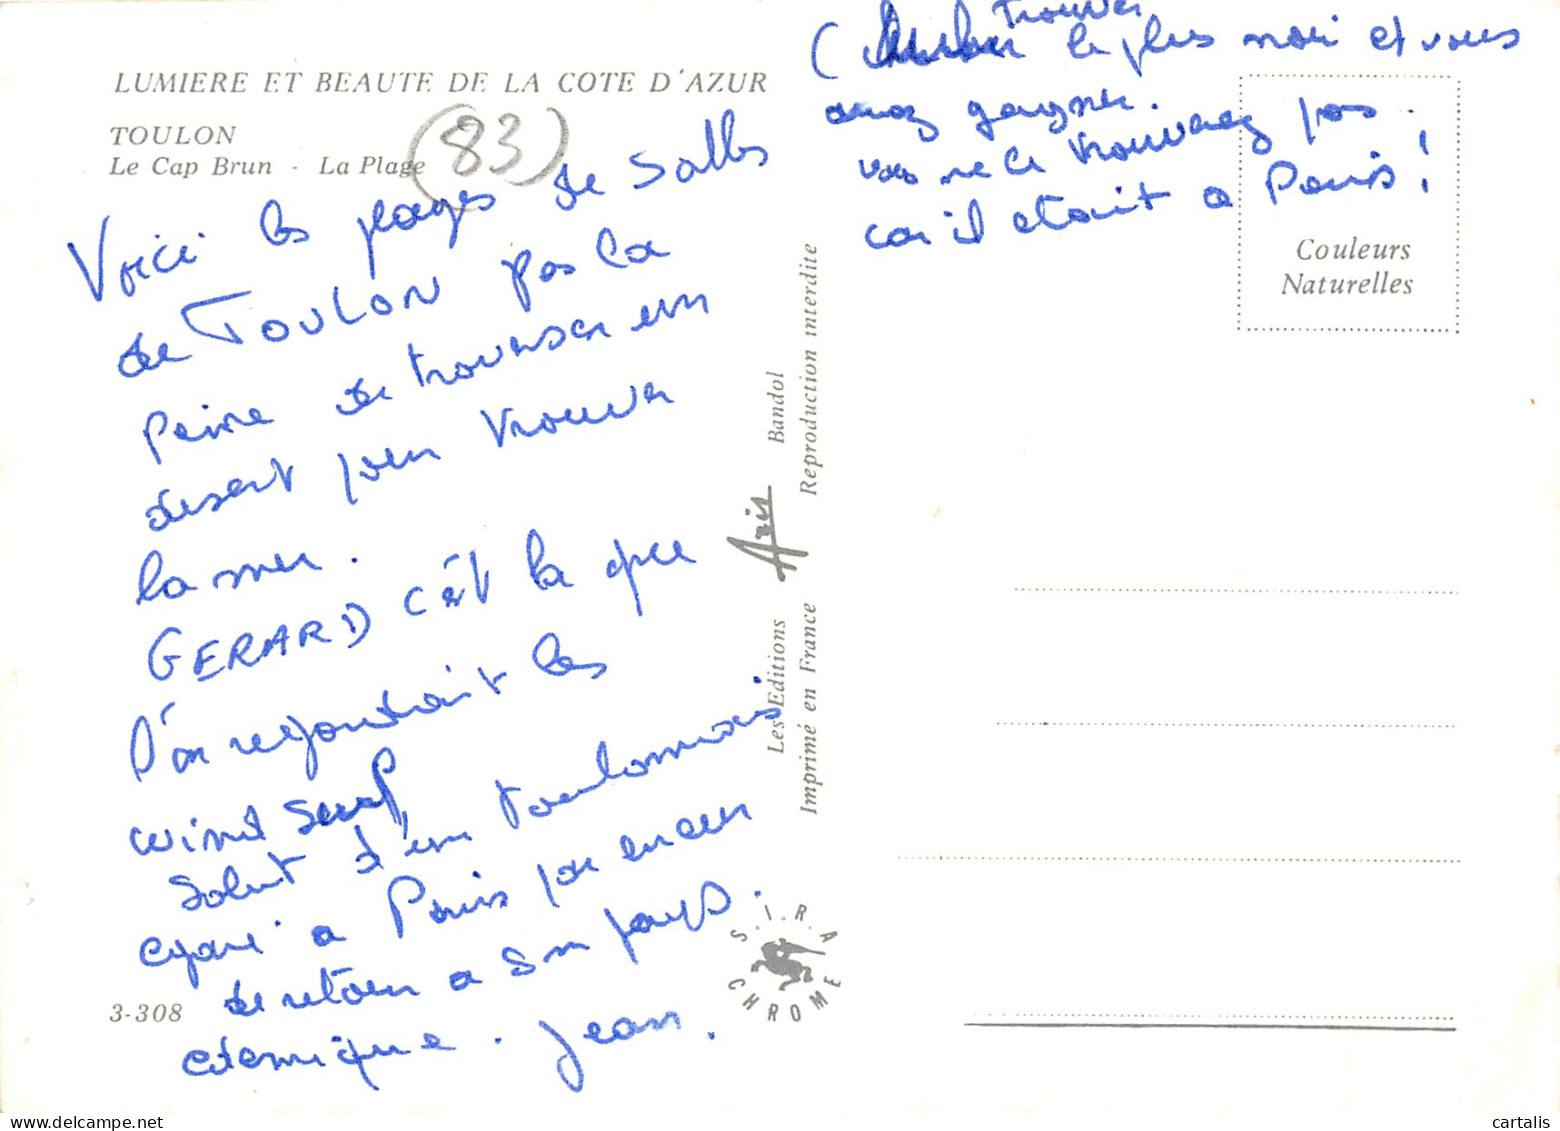 LUMIERE ET BEAUTE DE LA COTE D'AZUR
TOULON
(83)
Le Cap Brun - La Plage
Voici les plages de Salles
de TOULON pas la
peine de traverser un
desert pour trouver
la mer.
GERARD c'est la que
l'on rejoindrait les
wind surf
Salut d'un toulonnais
egaré a Paris
de retour a son pays.
Jean.
3-308
Les Editions Aris Bandol
Imprimé en France Reproduction interdite
S.I.R.A
CHROME
( trouver le plus noir et vous
avez gagner.
vous ne le trouverez pas
car il etait a Paris !
Couleurs
Naturelles
© cartalis